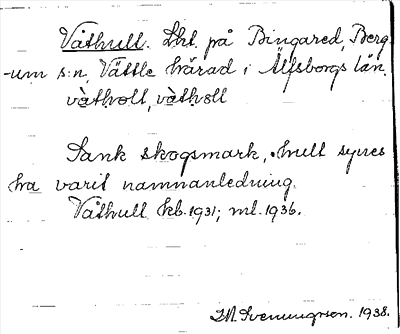 Våthull. Lht. på Bingared, Berg-
-um s:n, Vättle härad i Älfsborgs län.
våthɷll, våthɷll
Sank skogsmark, hult synes
ha varit namnanledning.
Våthull kb. 1931; ml. 1936.
Svenungsson. 1938.